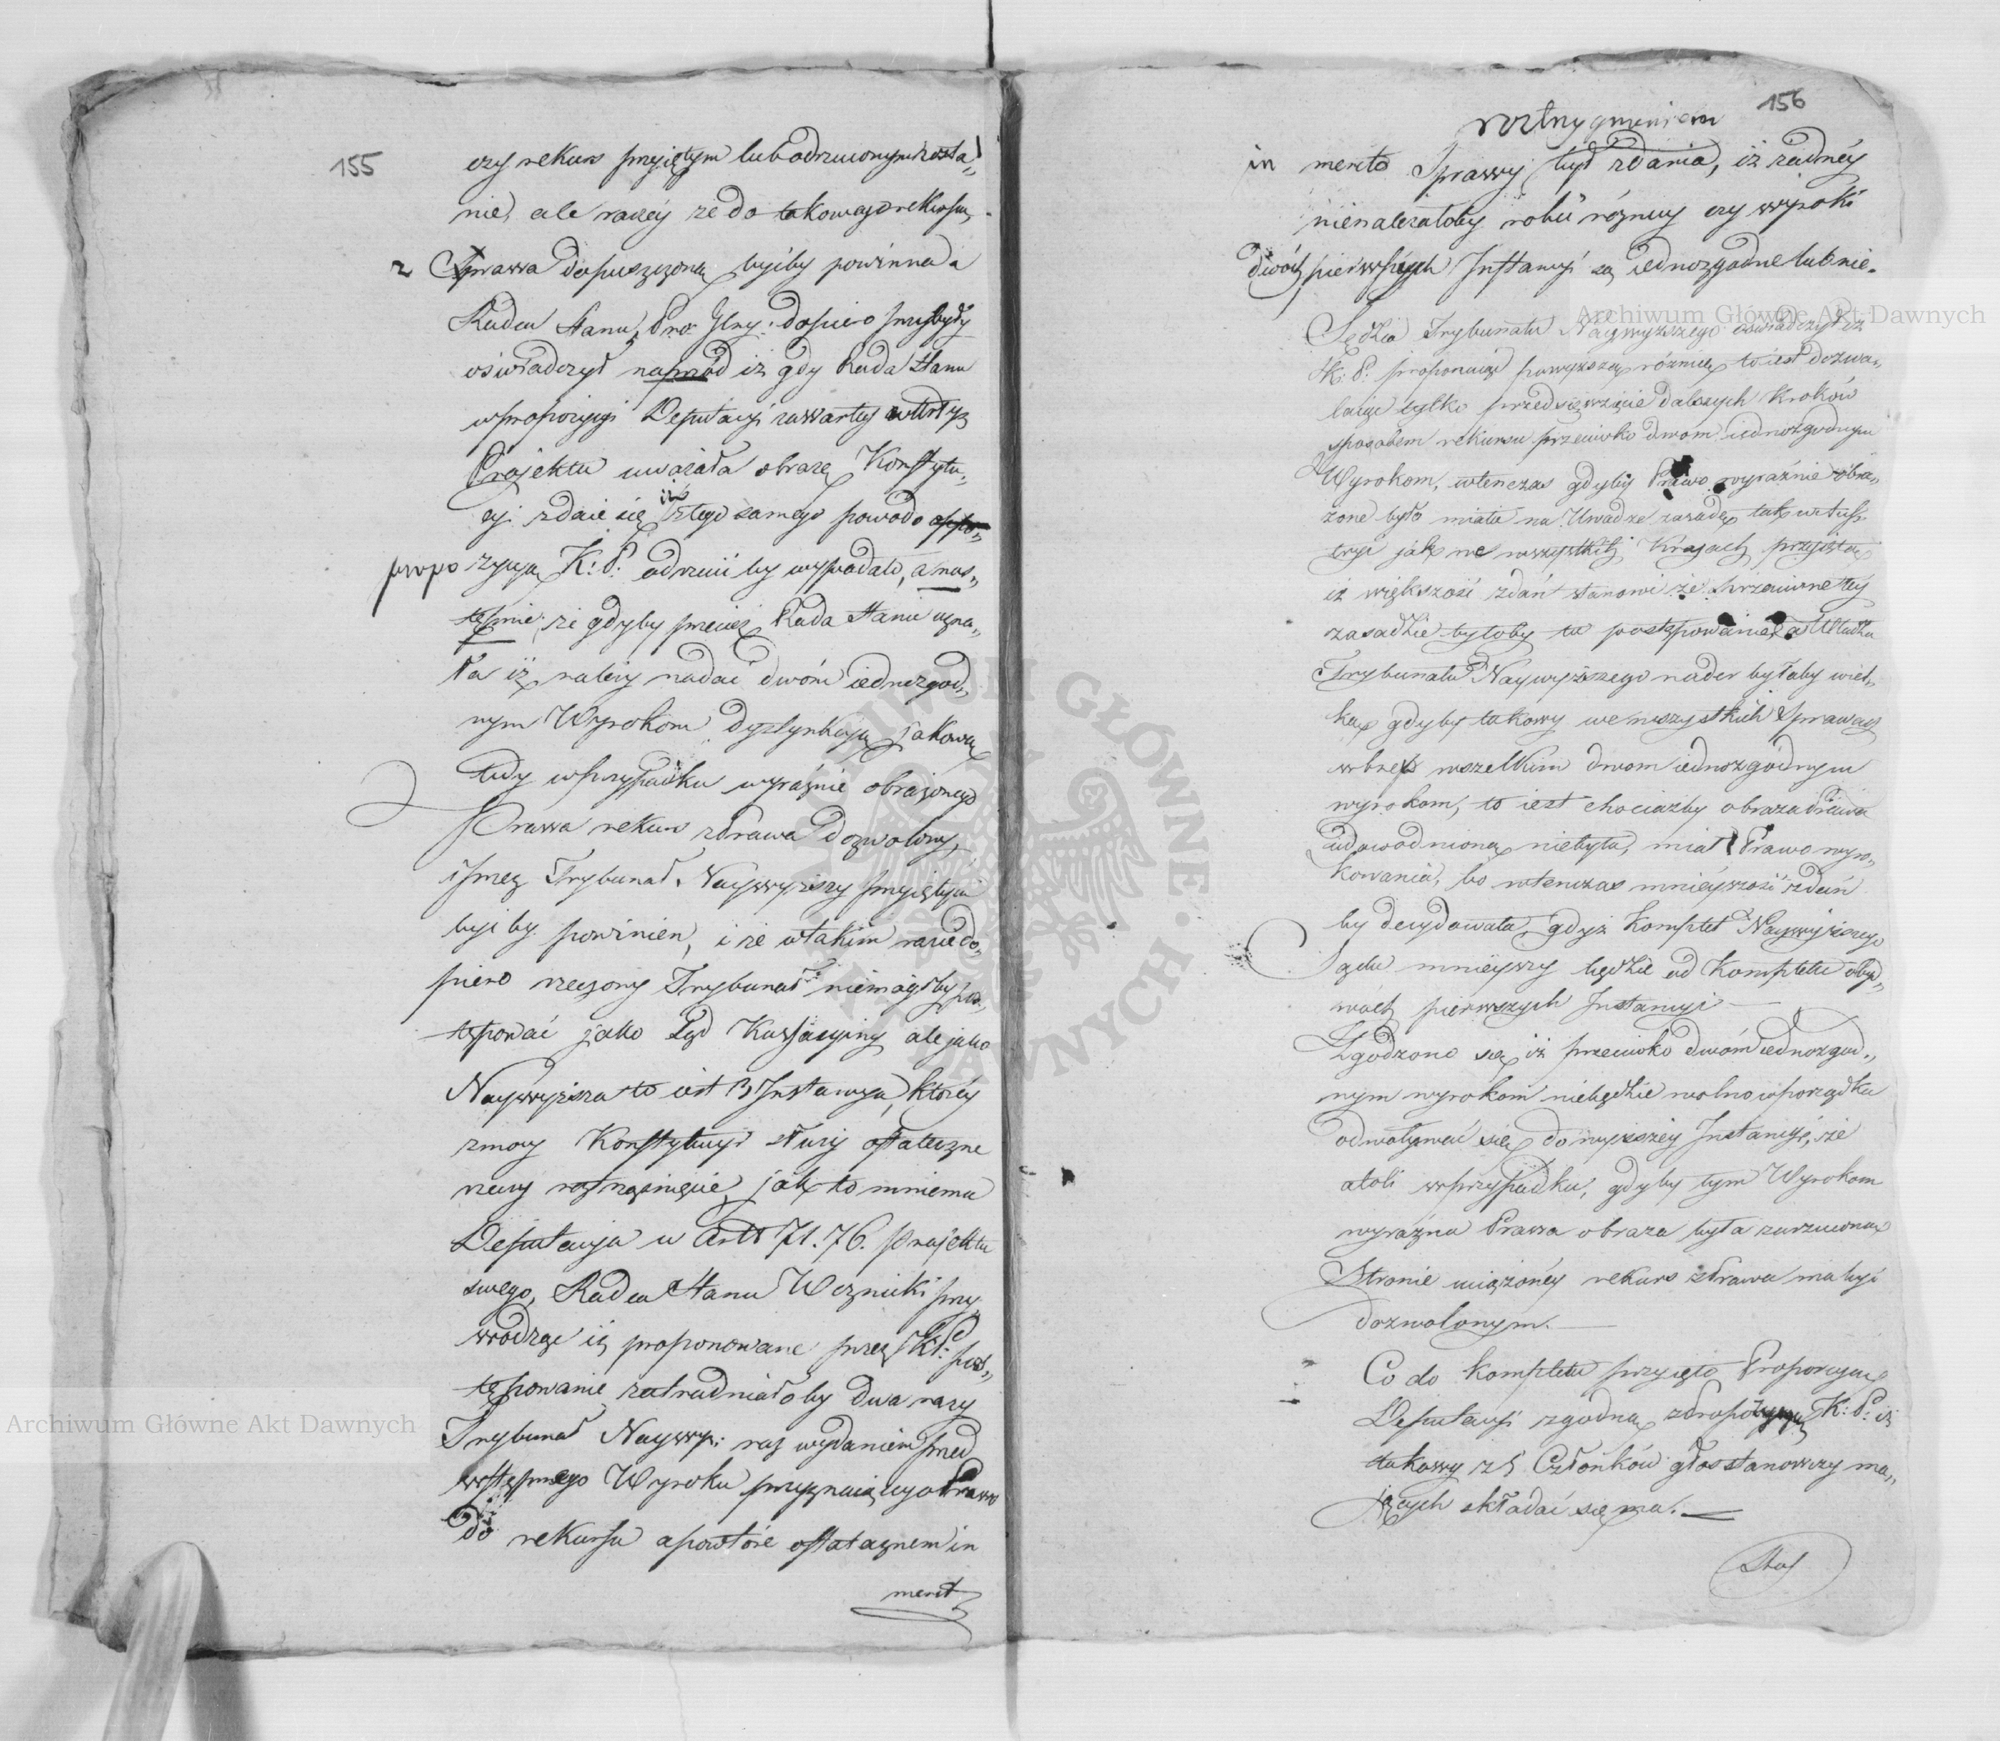 155
czy rekurs przyiętym lub odrzuconym zosta„
nie, ale raczéy że do takowego rekursu
z Prawa dopuszczoną byćby powinna
Radca Stanu, Pro: Glny: dopiero przybyły
oświadczył naprzód iż gdy Rada Stanu
w propozycyi Deputacyi zawartey
Projektu uważała obrazę Konstytu„
cyi zdaie się iż z tego samego powodu
propozycyą K: P: odrzucić by wypadało, a nas„
tępnie, że gdyby przecież Rada Stanu uzna„
ła iż należy nadać dwóm iednozgod„
nym Wyrokom dystynkcyą jakową
tedy w przypadku wyraźnie obrażonego
Prawa rekurs z Prawa dozwolony,
i przez Trybunał Naywyższy przyiętym
być by powinien, i że w takim razie do„
piero rzeczony Trybunał niemógłby pos„
tępować jako Sąd Kassacyiny ale jako
Naywyższa to iest 3 Instancya, któréy
z mocy Konstytucyi służy ostateczne
rzeczy rozstrzygnięcie, jak to mniema
Deputacya w Artt 71. 76. projektu
swego, Radca Stanu Woźnicki
iż proponowane przez K: P: pos„
tępowanie zatrudniałoby dwa razy
Trybunał Naywyż: raz wydaniem przed
wstępnego Wyroku przyznaiącego Prawo
do rekursu a powtóre ostatecznem in
merit
156
roztrzygnieniem
in merito Sprawy był zdania, iż żadnéy
nienależałoby robić różnicy czy wyroki
dwóch pierwszych Instancyi są iednozgodne lub nie.
Sędzia Trybunału Naywyższego oświadczył iż
K: P: proponuiąc powyższą różnicę to iest dozwa„
laiąc tylko przedsięwzięcie dalszych Kroków
sposobem rekursu przeciwko dwom iednozgodnym
Wyrokom, wtenczas gdyby Prawo wyraźnie obra„
żone było miała na Uwadze zasadę tak w Aus„
tryi jak we wszystkich Krajach przyiętą
iż większość zdań stanowi że przeciwne tey
zasadzie byłoby to postępowanie, a Władza
Trybunału Naywyższego nader byłaby wiel„
ką gdyby takowy we wszystkich Sprawach
wbrew wszelkim dwom iednozgodnym
wyrokom, to iest chociażby obraza Prawa
udowodnioną niebyła, miał Prawo wyro„
kowania, bo wtenczas mnieyszość zdań
by decydowała, gdyż Komplet Naywyższego
Sądu mnieyszy będzie od Kompletu obyd„
wóch pierwszych Instancyi —
Zgodzono się iż przeciwko dwóm iednozgod„
nym wyrokom niebędzie wolno w porządku
odwoływać się do wyższéy Instancyi, że
atoli w przypadku, gdyby tym Wyrokom
wyraźna Prawa obraza była zarzuconą
Stronie uciążonéy rekurs z Prawa ma być
dozwolonym. —
Co do kompletu przyięto Propozycyą
Deputacyi zgodną z Propozycyą K: P: iż
takowy z 5 Członków głos stanowczy ma„
jących składać się ma. —
Archiwum Główne Akt Dawnych
Archiwum Główne Akt Dawnych